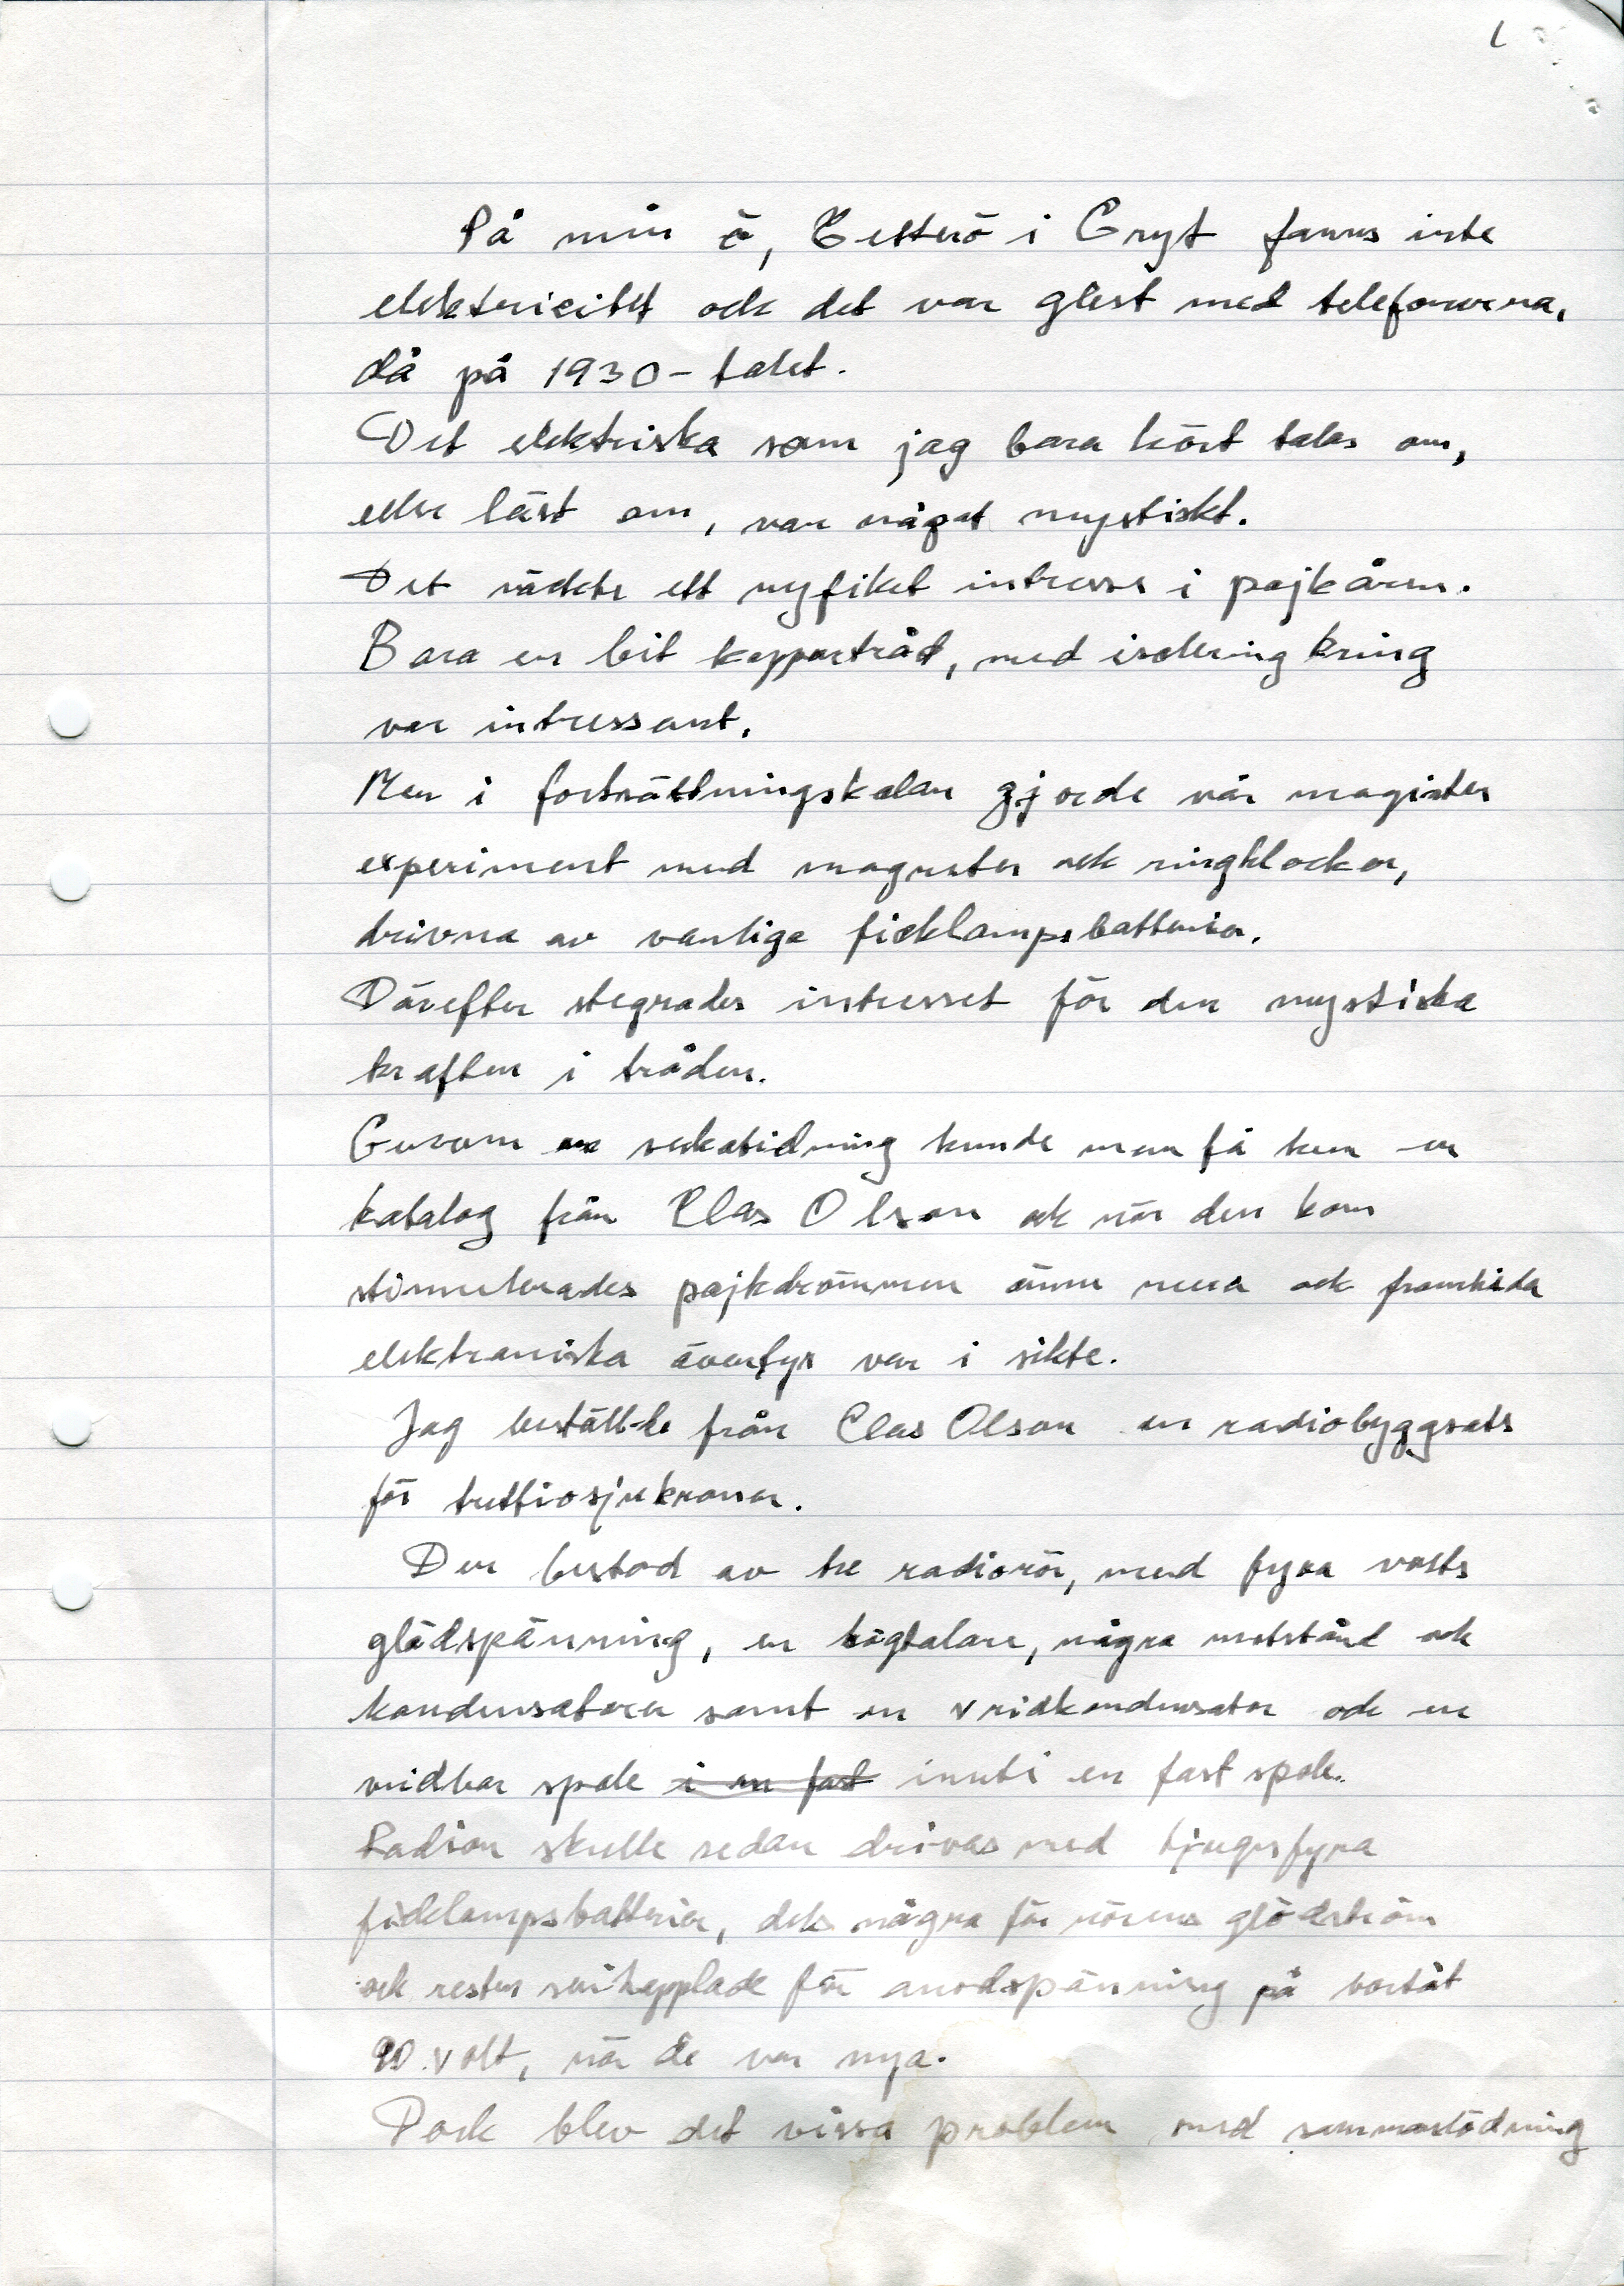 1
På min ö, Eetterö i Gryt fanns inte
elektricitet och det var glest med telefonerna,
då på 1930-talet.
Det elektriska som jag bara hört talas om,
eller läst om, var något mystiskt.
Det väckte ett nyfiket intresse i pojkåren.
Bara en bit koppartråd, med isolering kring
var intressant.
Men i fortsättningskolan gjorde vår magister
experiment med magneter och ringklockor,
drivna av vanliga ficklampsbatterier.
Därefter stegrades intresset för den mystiska
kraften i tråden.
Genom en veckotidning kunde man få hem en
katalog från Clas Olson och när den kom
stimulerades pojkdrömmen ännu mera och framtida
elektroniska äventyr var i sikte.
Jag beställde från Clas Olson en radiobyggsats
för trettiosju kronor.
Den bestod av tre radiorör, med fyra volts
glödspänning, en högtalare, några motstånd och
kondensatorer samt en vridkondensator och en
vridbar spole i en fast inuti en fast spole.
Radion skulle sedan drivas med tjugofyra
ficklampsbatterier, dels några för rörens glödström
och resten seriekopplade för anodspänning på bortåt
90 volt, när de var nya.
Dock blev det vissa problem med sammanlödning